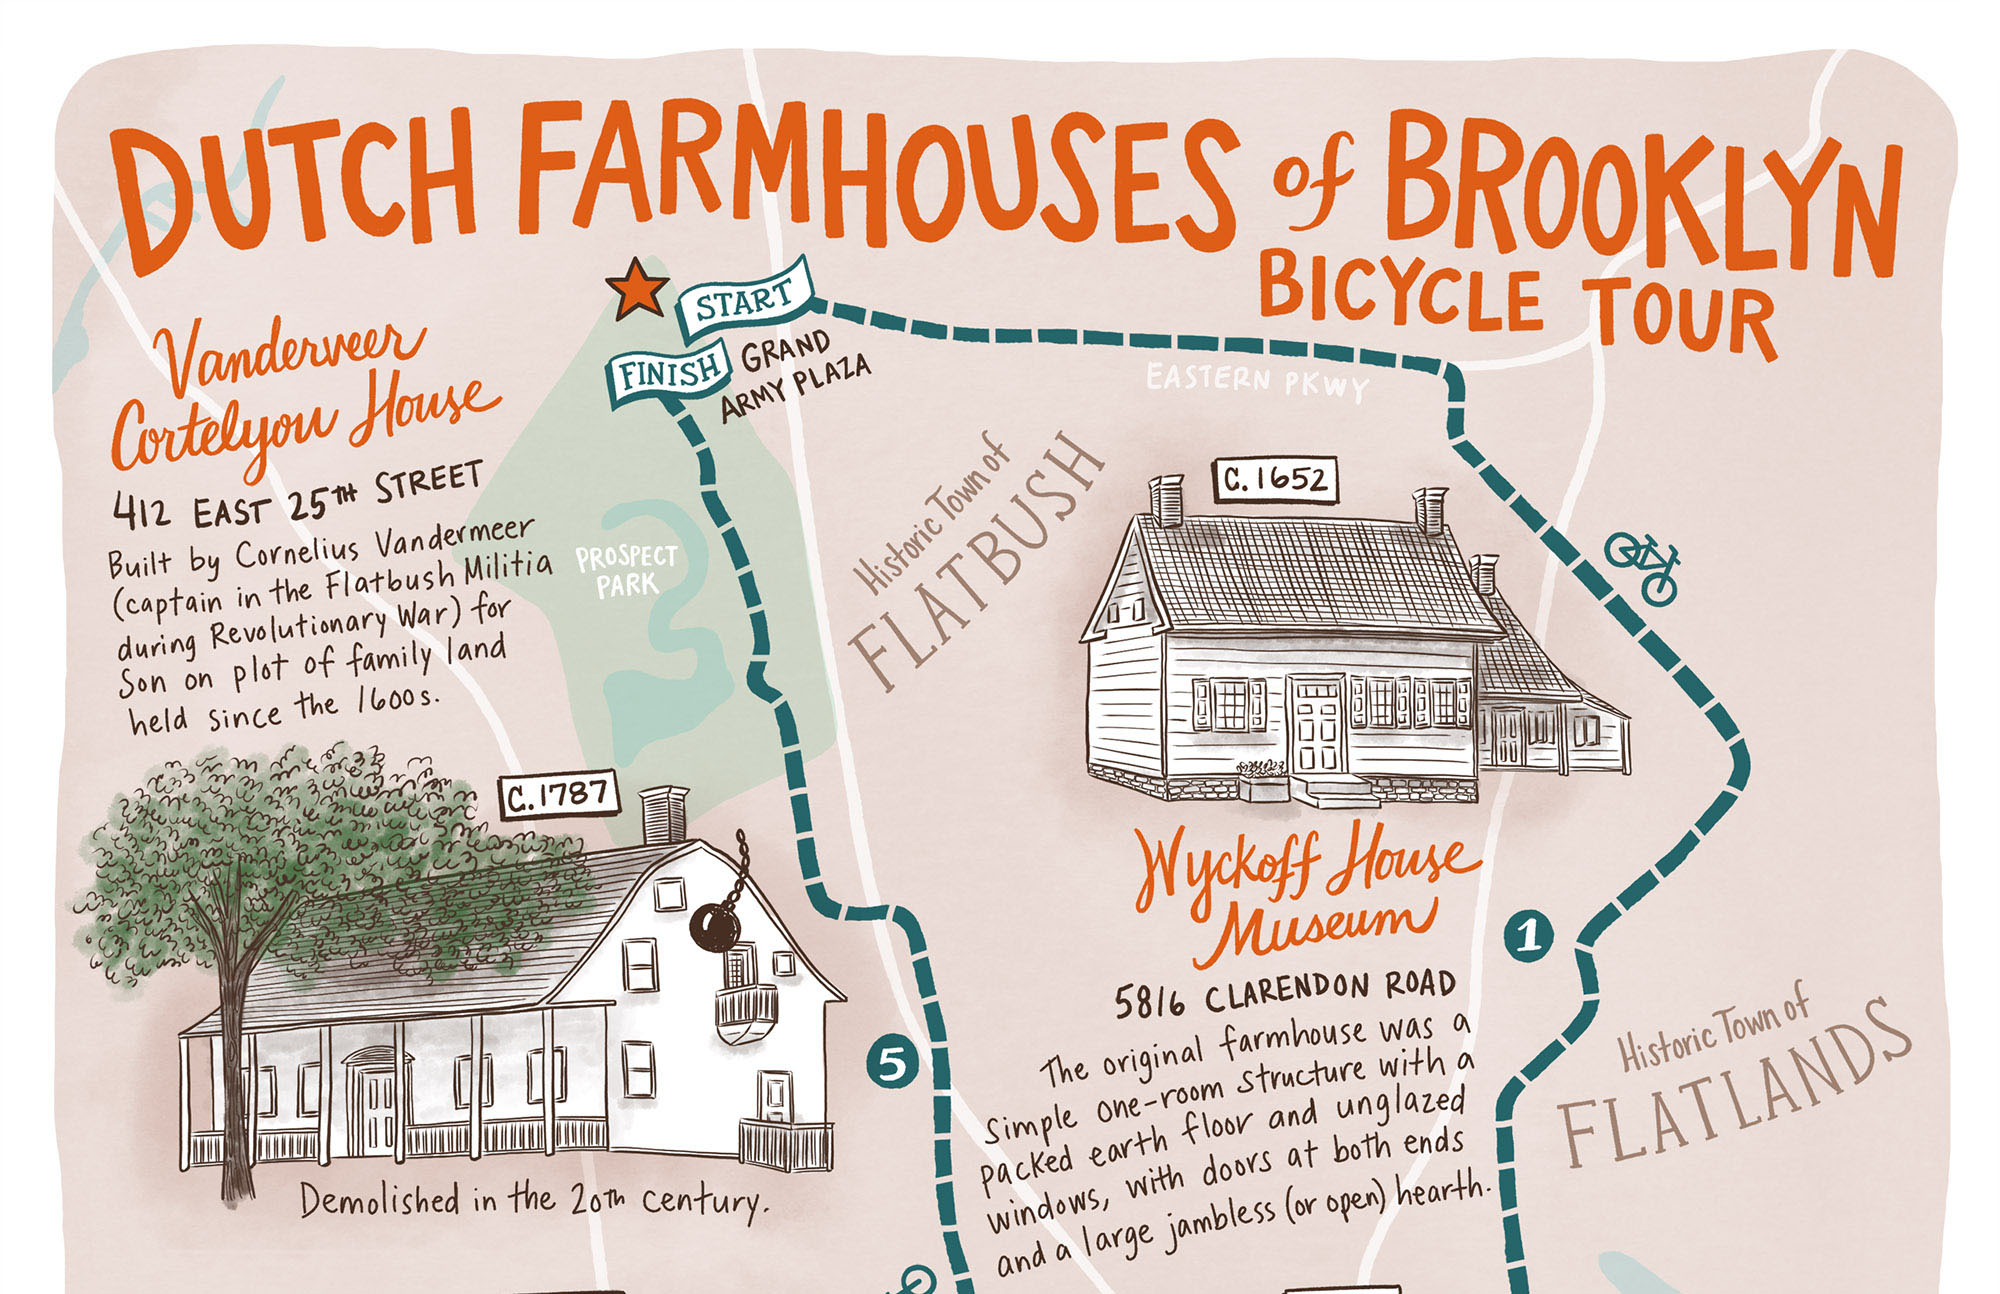 DUTCH FARMHOUSES of BROOKLYN
BICYCLE TOUR
START
FINISH
GRAND
ARMY PLAZA
EASTERN PKWY
Vanderveer
Cortelyou House
412 EAST 25TH STREET
Built by Cornelius Vandermeer
(captain in the Flatbush Militia
during Revolutionary War) for
Son on plot of family land
held since the 1600s.
PROSPECT
PARK
C. 1787
Demolished in the 20th century.
5
Historic Town of
FLATBUSH
C. 1652
Wyckoff House
Museum
5816 CLARENDON ROAD
The original farmhouse was a
simple one-room structure with a
packed earth floor and unglazed
windows, with doors at both ends
and a large jambless (or open) hearth.
1
Historic Town of
FLATLANDS